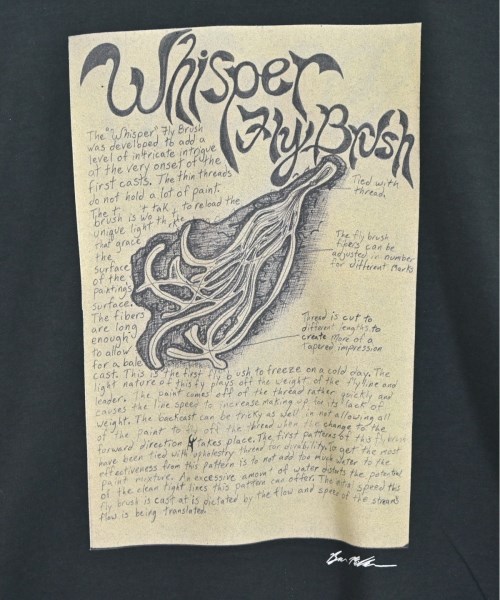 Whisper
Fly Brush
The "Whisper" Fly Brush
was developed to add a
level of intricate intrigue
at the very onset of the
first casts. The thin threads
do not hold a lot of paint.
to reload the
brush is
unique light
that grace
the
surface
of the
paintings
surface.
The fibers
are long
enough
to allow
for a
cast. This is the first fly to freeze on a cold day. The
light nature of this fly plays off the weight of the fly line and
leader. The paint comes off of the thread rather quickly and
causes the line speed to increase making up for its lack of
weight. The backcast can be tricky as well in not allowing all
of the paint to fly off the thread when the change to the
forward direction takes place. The first patterns of this fly brush
have been tied with upholestry thread for durability. To get the most
effectiveness from this pattern is to not add too much water to the
paint mixture. An excessive amount of water distorts the potential
of the clean tight lines this pattern can offer. The speed this
fly brush is cast at is dictated by the flow and speed of the streams
flow is being translated.
Tied with
thread
The fly brush
fibers can be
adjusted in number
for different marks
Thread is cut to
different lengths to
create more of a
tapered impression